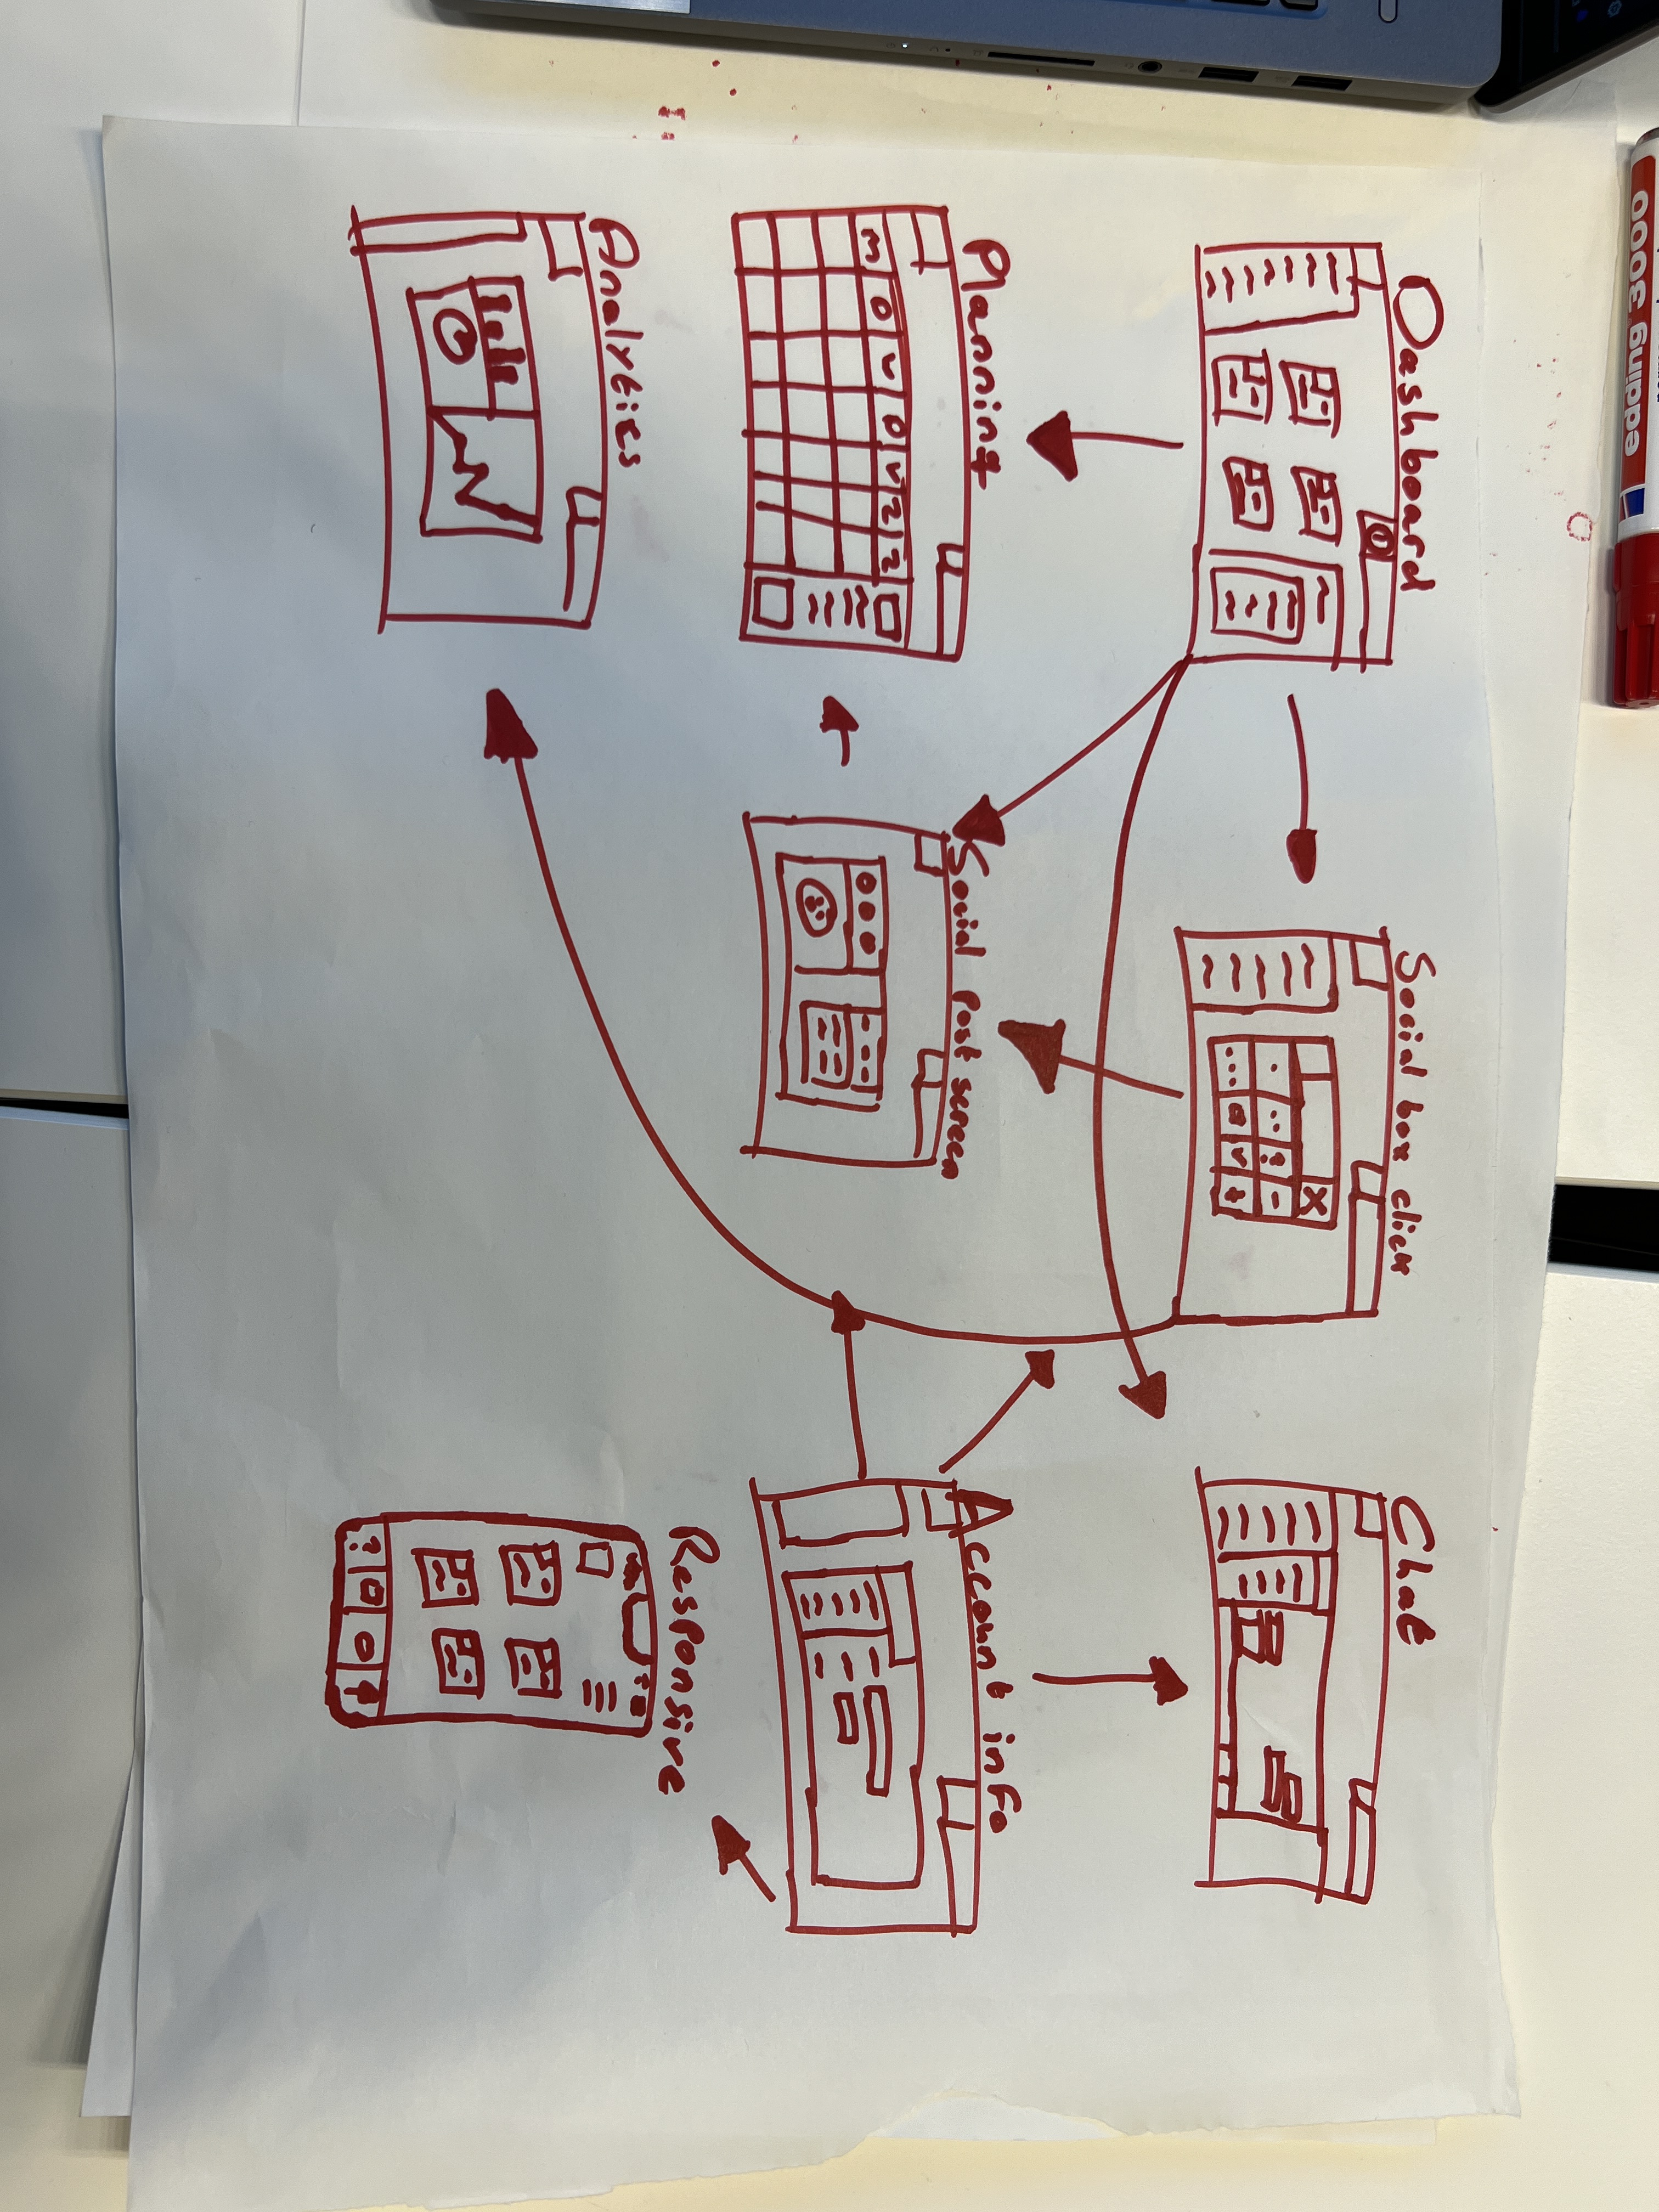 edding 3000
Dashboard
Social box click
Chat
Planning
M D W D V Z Z
Social Post screen
Account info
Analytics
Responsive
?